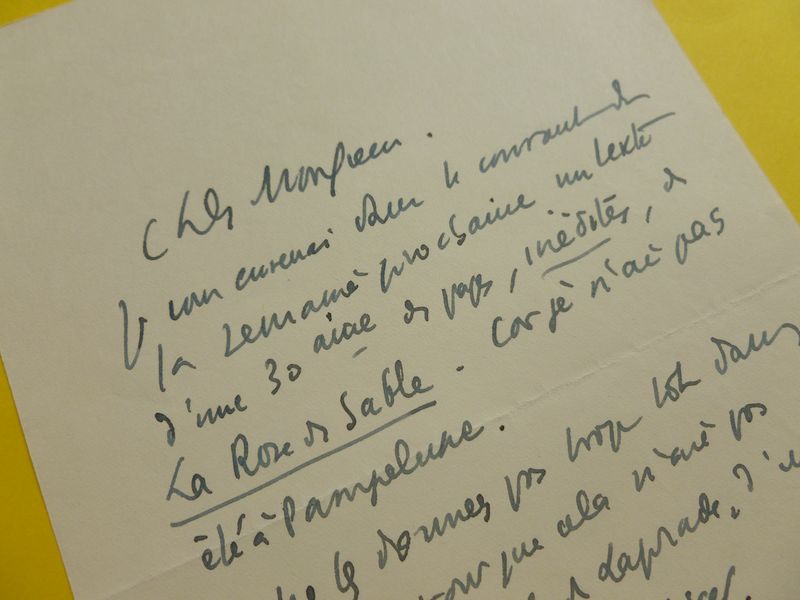 Cher Monsieur.
Je vous enverrai dans le courant de
la semaine prochaine un texte
d'une 30 aine de pages, inédites, de
La Rose de Sable. Car je n'ai pas
été à Pampelune.
les donnez pas trop tôt dans
pour que cela n'ait pas
Laprade. J'